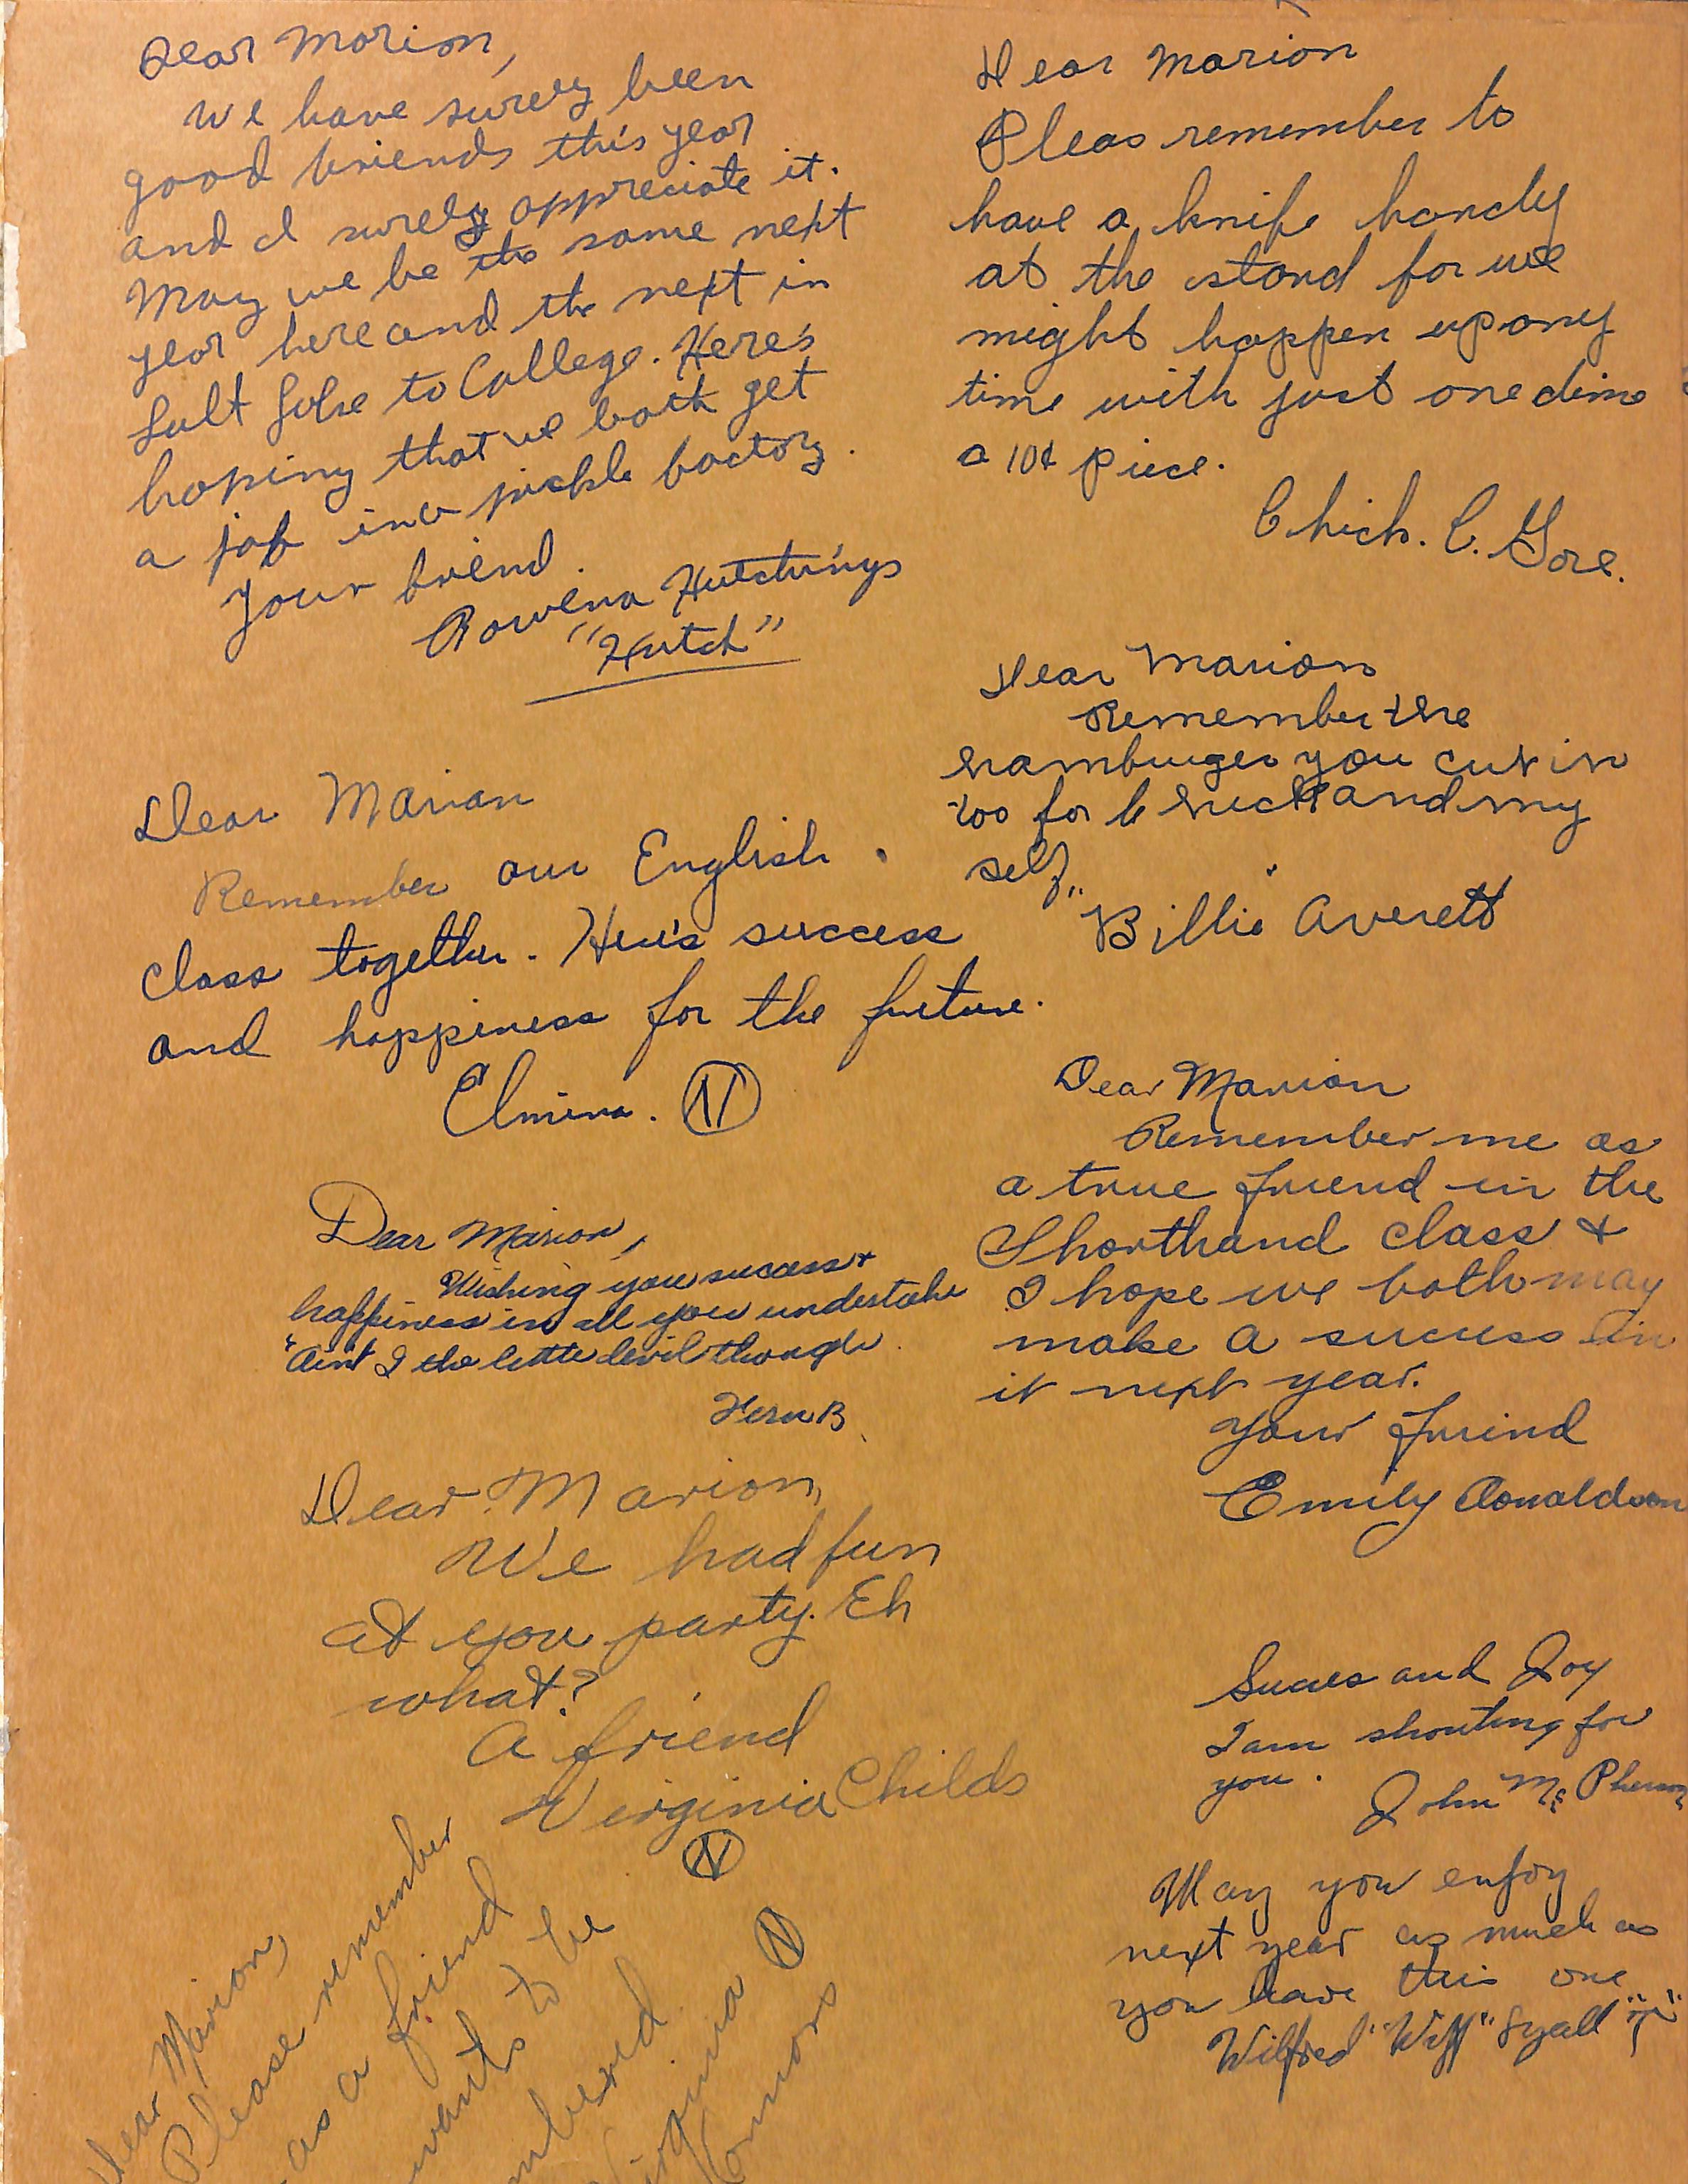 Dear Marion,
We have surely been
good friends this year
and I surely appreciate it.
May we be the same next
year here and the next in
Salt Lake to College. Here's
hoping that we both get
a job in a pickle factory.
Your friend.
Rowena Hutchings
"Hutch"
Dear Marian
Remember our English
class together. Here's success
and happiness for the future.
Elmina. N
Dear Marion,
Wishing you success &
happiness in all you undertake
"Aint I the little devil though
Fern B.
Dear Marion,
We had fun
at you party. Eh
what?
A friend
Virginia Childs
N
Dear Marion,
Please remember
as a friend
wants to be
N
Connors
Dear Marion
Pleas remember to
have a knife handy
at the stand for we
might happen up any
time with just one dime
a 10¢ piece.
Chick. C. Gore.
Dear Marion
Remember the
hamburger you cut in
too for Chick and my
self,
"Billie" Averett
Dear Marion
Remember me as
a true friend in the
Shorthand class &
I hope we both may
make a success in
it next year.
Your friend
Emily Donaldson
Succes and Joy
I am shouting for
you.
John McPherson
May you enjoy
next year as much as
you have this one
Wilfred "Wiff" Lyall